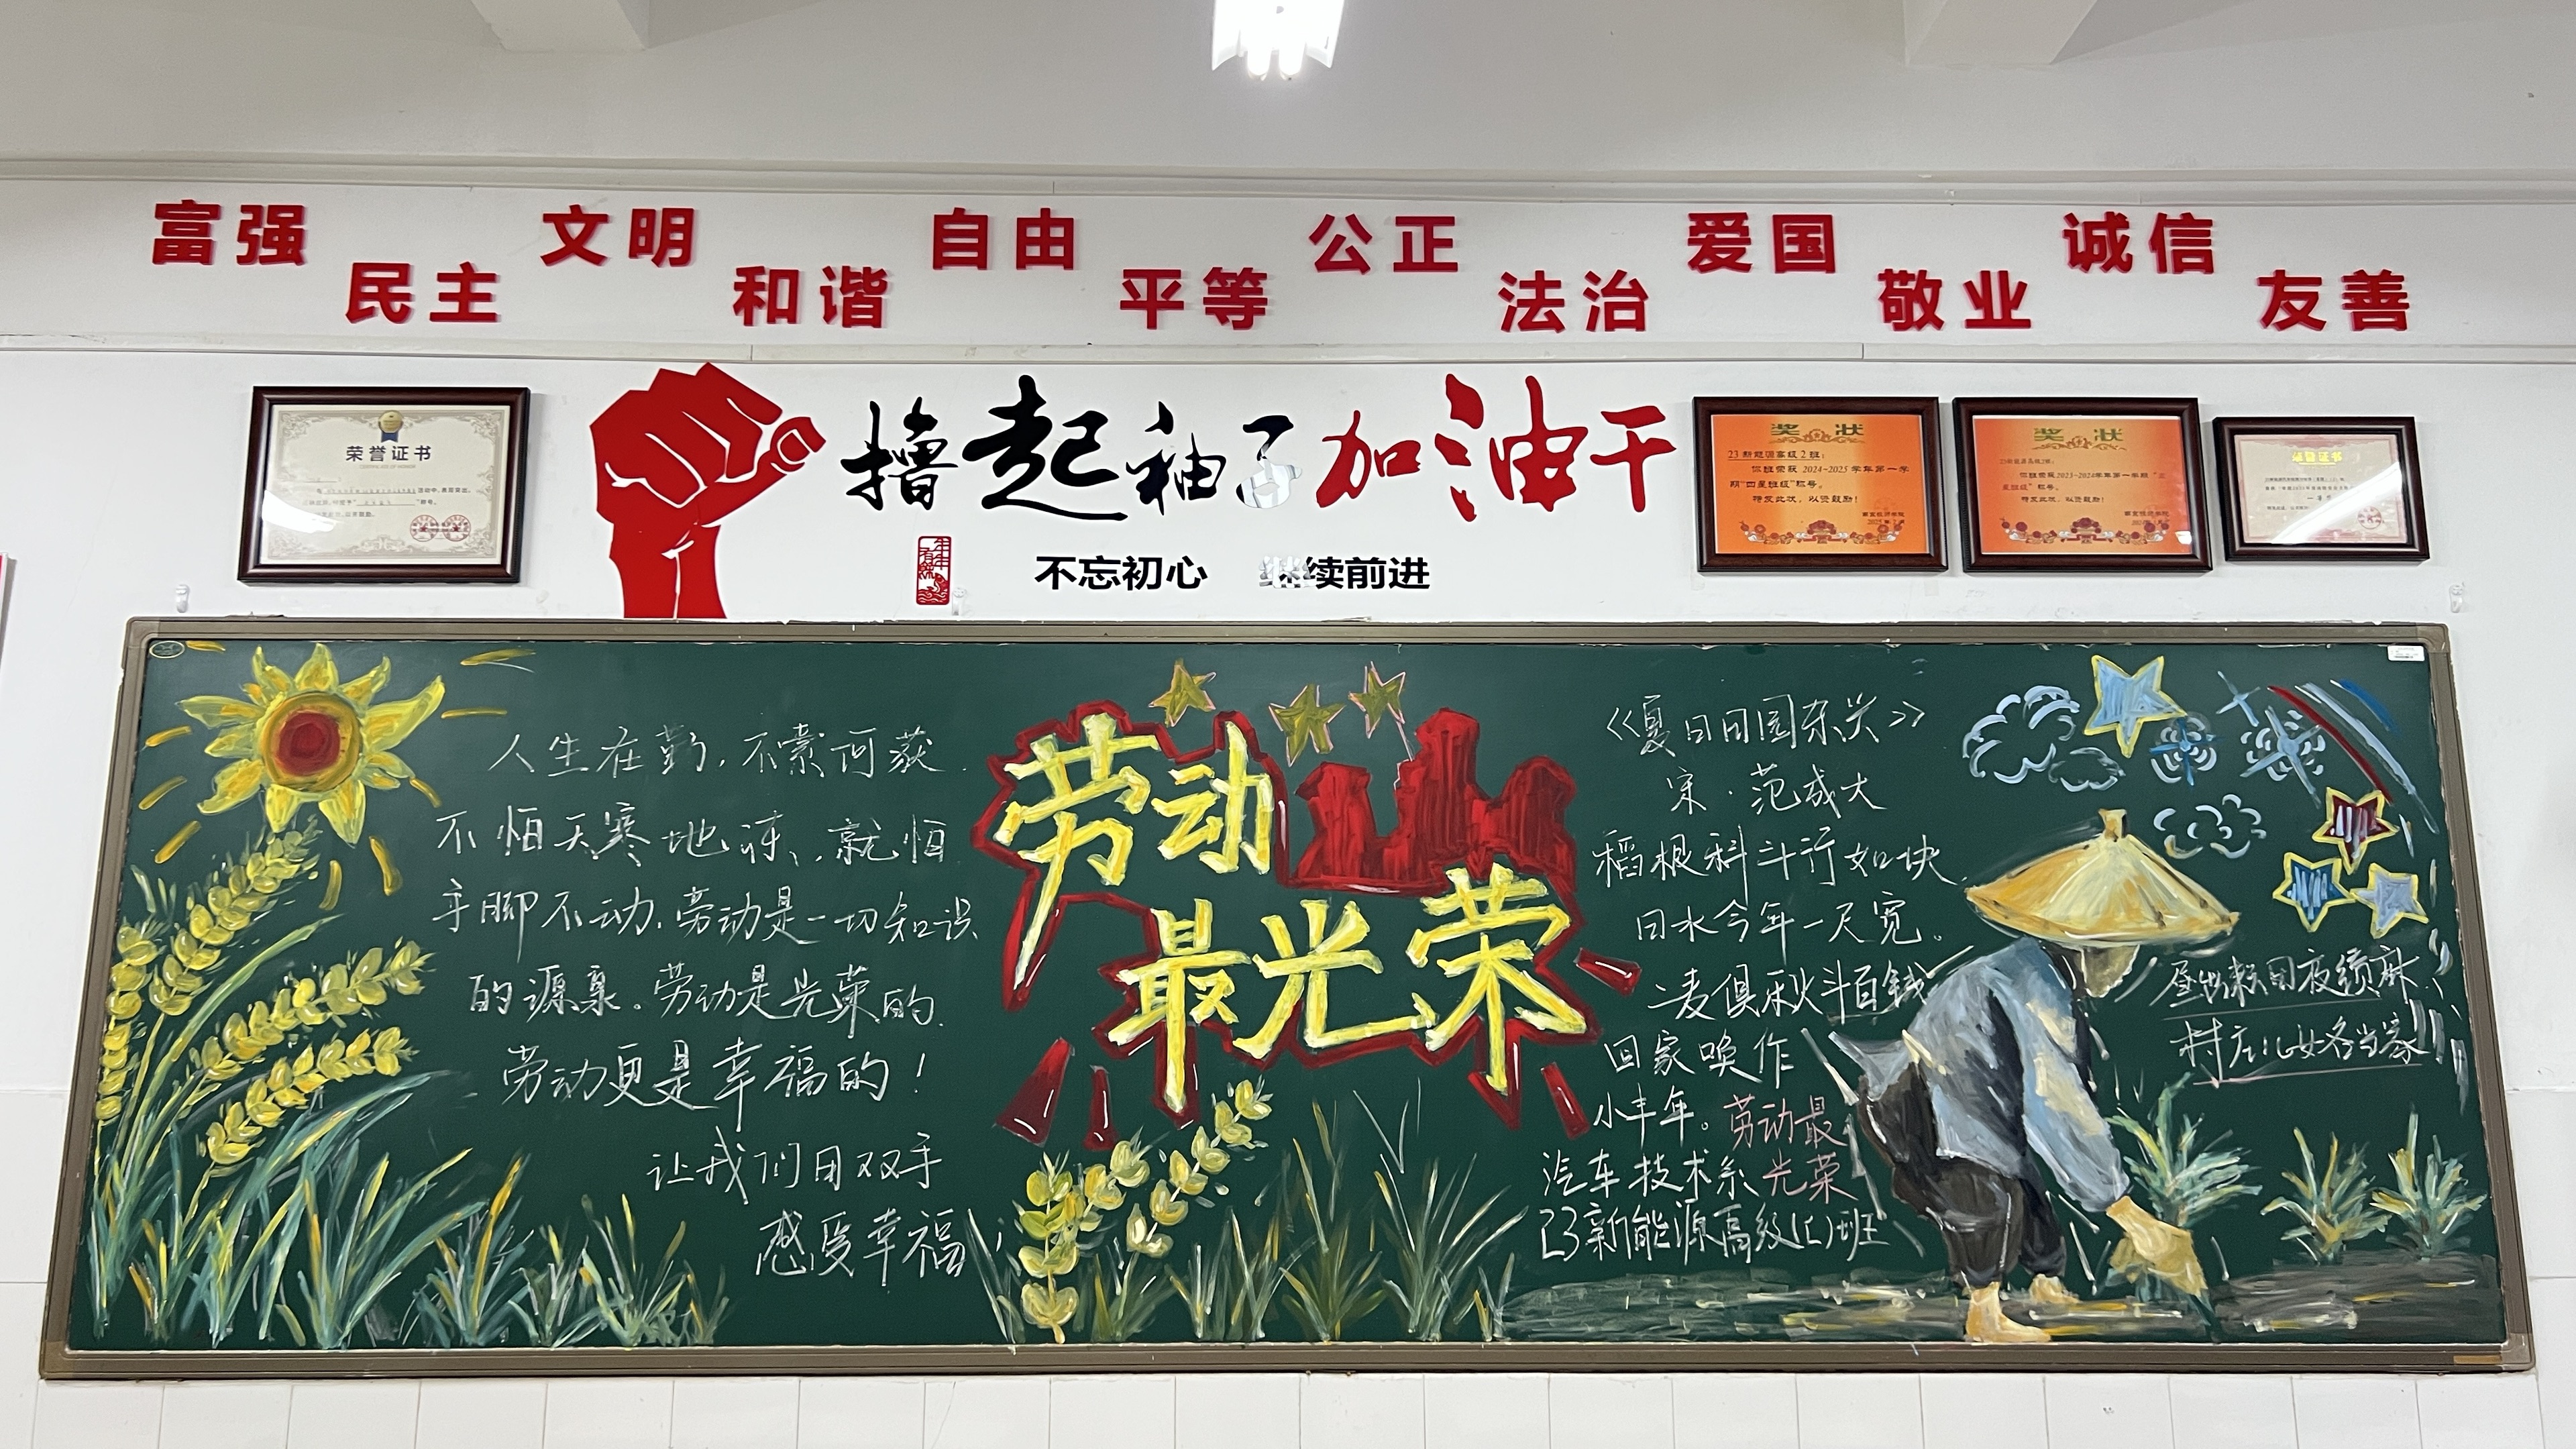 富强 民主 文明 和谐 自由 平等 公正 法治 爱国 敬业 诚信 友善
荣誉证书
CERTIFICATE OF HONOR
撸起袖子加油干
不忘初心 继续前进
奖状
23新能源高级2班:
你班荣获2024~2025学年第一学
期"四星班级"称号。
特发此状,以资鼓励!
奖状
23新能源高级2班:
你班荣获2023-2024学年第一学期"五
星班级"称号。
特发此状,以资鼓励!
荣誉证书
人生在勤,不索何获.
不怕天寒地冻,就怕
手脚不动,劳动是一切知识
的源泉。劳动是光荣的.
劳动更是幸福的!
让我们用双手
感受幸福
劳动
最光荣
《夏日田园杂兴》
宋·范成大
稻根科斗行如块,
田水今年一尺宽。
麦俱秋斗百钱
回家唤作
小丰年。劳动最
汽车技术系光荣
23新能源高级(2)班
昼出耘田夜绩麻.
村庄儿女各当家